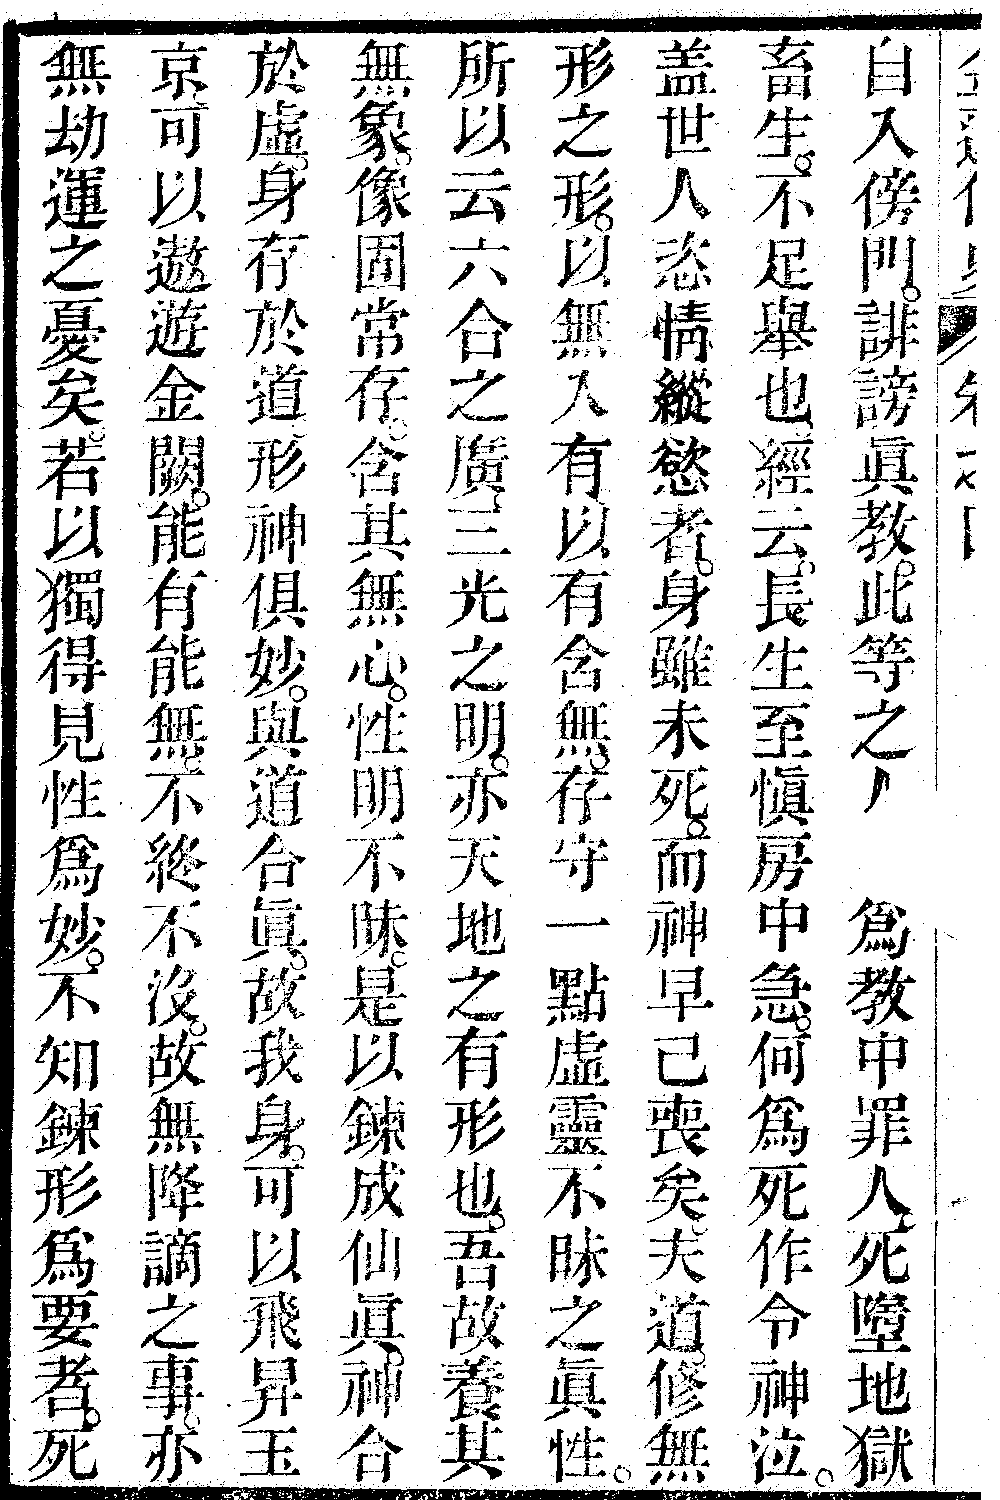 自入傍門。誹謗眞教。此等之 爲教中罪人。死墮地獄
畜生。不足舉也。經云。長生至愼房中急。何爲死作令神泣。
盖世人恣情縱慾者。身雖未死。而神早已喪矣。夫道。修無
形之形。以無入有。以有含無。存守一點虛靈不昧之眞性。
所以云六合之廣。三光之明。亦天地之有形也。吾故養其
無象。像固常存。含其無心。性明不昧。是以鍊成仙眞。神合
於虛。身存於道。形神俱妙。與道合眞。故我身。可以飛昇玉
京。可以遨遊金闕。能有能無。不終不沒。故無降謫之事。亦
無劫運之憂矣。若以獨得見性爲妙。不知鍊形爲要者。死